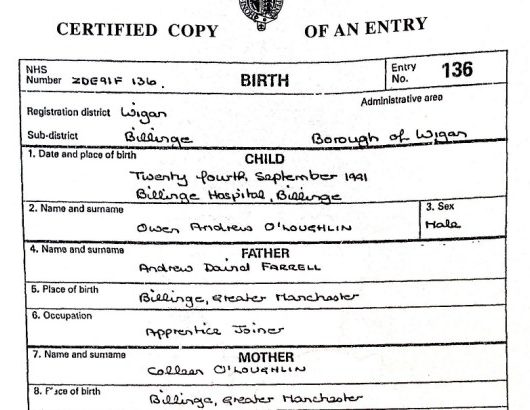 CERTIFIED COPY OF AN ENTRY
NHS Number ZDE91F 136. BIRTH Entry No. 136
Administrative area
Registration district Wigan
Sub-district Billinge Borough of Wigan
1. Date and place of birth CHILD
Twenty fourth September 1991
Billinge Hospital, Billinge
2. Name and surname 3. Sex
Owen Andrew O'LOUGHLIN Male
4. Name and surname FATHER
Andrew David FARRELL
5. Place of birth
Billinge, Greater Manchester
6. Occupation
Apprentice Joiner
7. Name and surname MOTHER
Colleen O'LOUGHLIN
8. Place of birth
Billinge, Greater Manchester